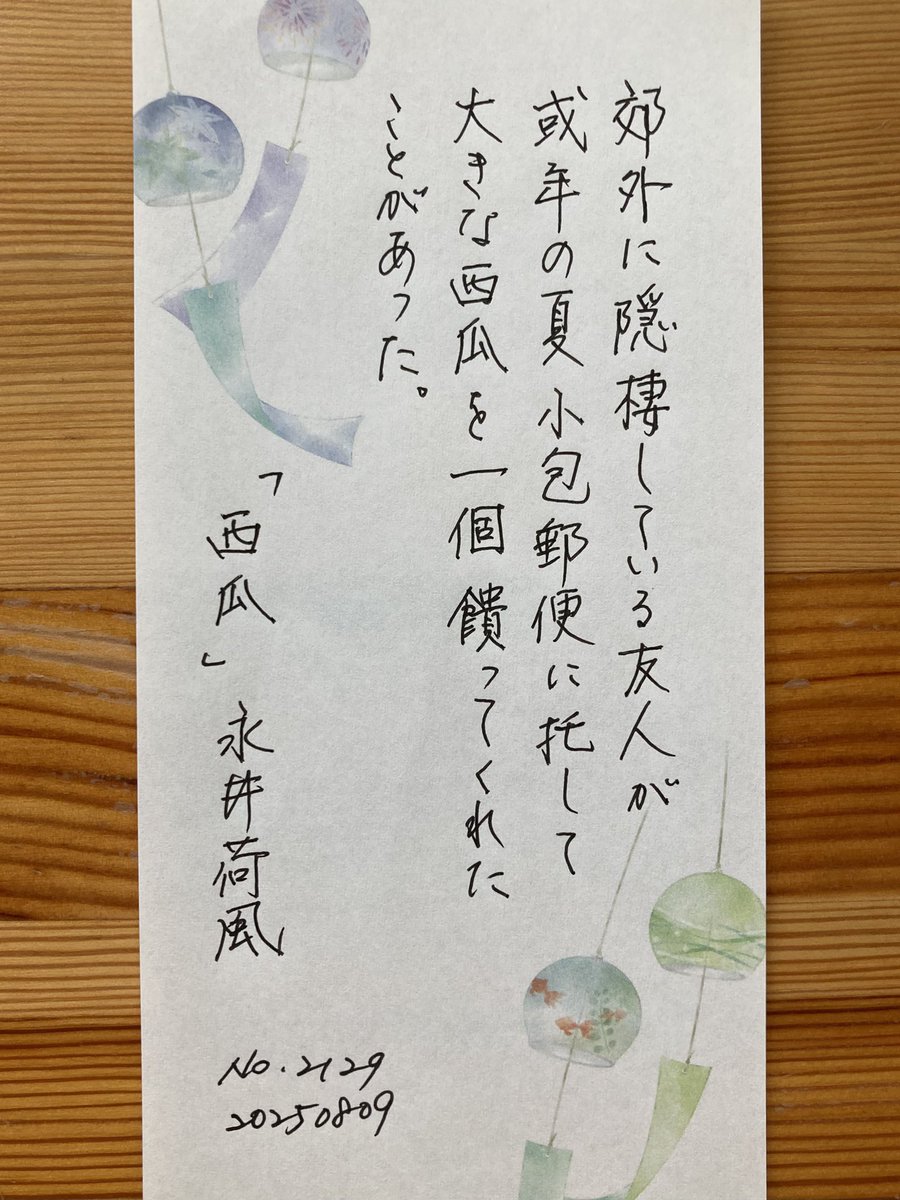 郊外に隠棲している友人が
或年の夏小包郵便に托して
大きな西瓜を一個饋ってくれた
ことがあった。
「西瓜」永井荷風
No.2129
20250809